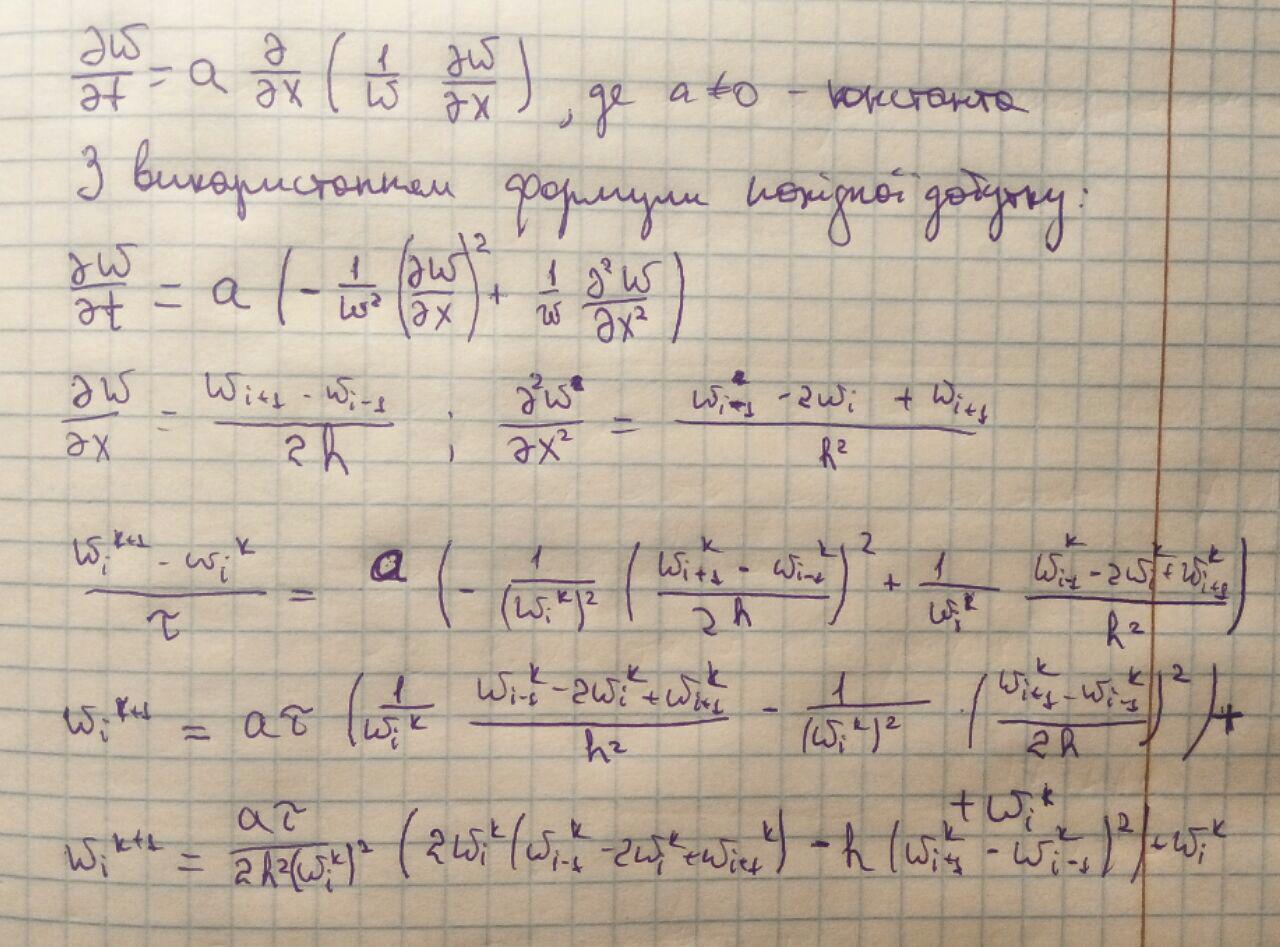 ∂w/∂t = a ∂/∂x ( 1/w ∂w/∂x ), де a ≠ 0 - константа
З використанням формули похідної добутку:
∂w/∂t = a ( - 1/w² (∂w/∂x)² + 1/w ∂²w/∂x² )
∂w/∂x = (w_{i+1} - w_{i-1})/2h ; ∂²w/∂x² = (w_{i-1} - 2w_i + w_{i+1})/h²
(w_i^{k+1} - w_i^k)/τ = a ( - 1/(w_i^k)² ( (w_{i+1}^k - w_{i-1}^k)/2h )² + 1/w_i^k (w_{i-1}^k - 2w_i^k + w_{i+1}^k)/h² )
w_i^{k+1} = aτ ( 1/w_i^k (w_{i-1}^k - 2w_i^k + w_{i+1}^k)/h² - 1/(w_i^k)² · ( (w_{i+1}^k - w_{i-1}^k)/2h )² ) +
+ w_i^k
w_i^{k+1} = aτ/(2h²(w_i^k)²) ( 2w_i^k (w_{i-1}^k - 2w_i^k + w_{i+1}^k) - h (w_{i+1}^k - w_{i-1}^k)² ) + w_i^k